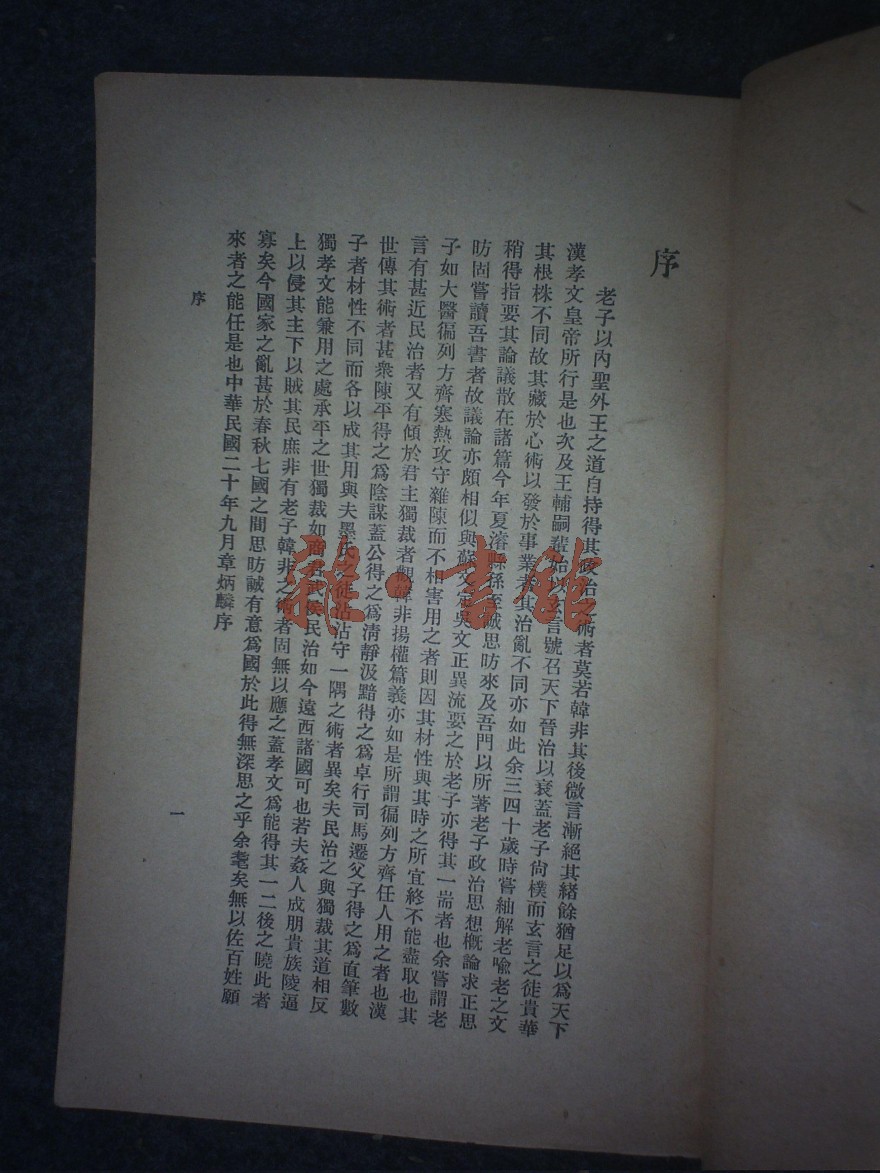 序
老子以內聖外王之道自持得其政治之術者莫若韓非其後微言漸絕其緒餘猶足以爲天下
漢孝文皇帝所行是也次及王輔嗣輩始以玄言號召天下晉治以衰蓋老子尙樸而玄言之徒貴華
其根株不同故其藏於心術以發於事業者其治亂不同亦如此余三四十歲時嘗紬解老喩老之文
稍得指要其論議散在諸篇今年夏濬縣孫至誠思昉來及吾門以所著老子政治思想槪論求正思
昉固嘗讀吾書者故議論亦頗相似與蘇文定吳文正異流要之於老子亦得其一耑者也余嘗謂老
子如大醫徧列方齊寒熱攻守雜陳而不相害用之者則因其材性與其時之所宜終不能盡取也其
言有甚近民治者又有傾於君主獨裁者觀韓非揚權篇義亦如是所謂徧列方齊任人用之者也漢
世傳其術者甚衆陳平得之爲陰謀蓋公得之爲淸靜汲黯得之爲卓行司馬遷父子得之爲直筆數
子者材性不同而各以成其用與夫墨氏之徒沾沾守一隅之術者異矣夫民治之與獨裁其道相反
獨孝文能兼用之處承平之世獨裁如商君武侯民治如今遠西諸國可也若夫姦人成朋貴族陵逼
上以侵其主下以賊其民庶非有老子韓非之術者固無以應之蓋孝文爲能得其一二後之曉此者
寡矣今國家之亂甚於春秋七國之間思昉誠有意爲國於此得無深思之乎余耄矣無以佐百姓願
來者之能任是也中華民國二十年九月章炳麟序
序
一
雜·書館